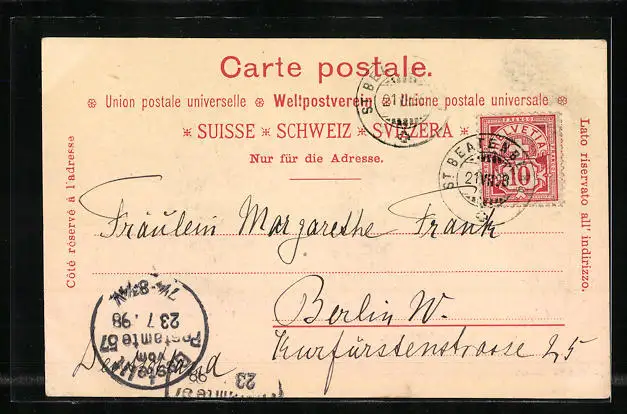 Carte postale.
❊ Union postale universelle ❊ Weltpostverein ❊ Unione postale universale ❊
✳ SUISSE ✳ SCHWEIZ ✳ SVIZZERA ✳
Nur für die Adresse.
Côté réservé à l'adresse
Lato riservato all' indirizzo.
ST BEATENB
21 VII 98
FRANCO
HELVETIA
10
Fräulein Margarethe Frank
Berlin W.
Kurfürstenstrasse 25
23 7. 98
Postamte 57
vom
23
98